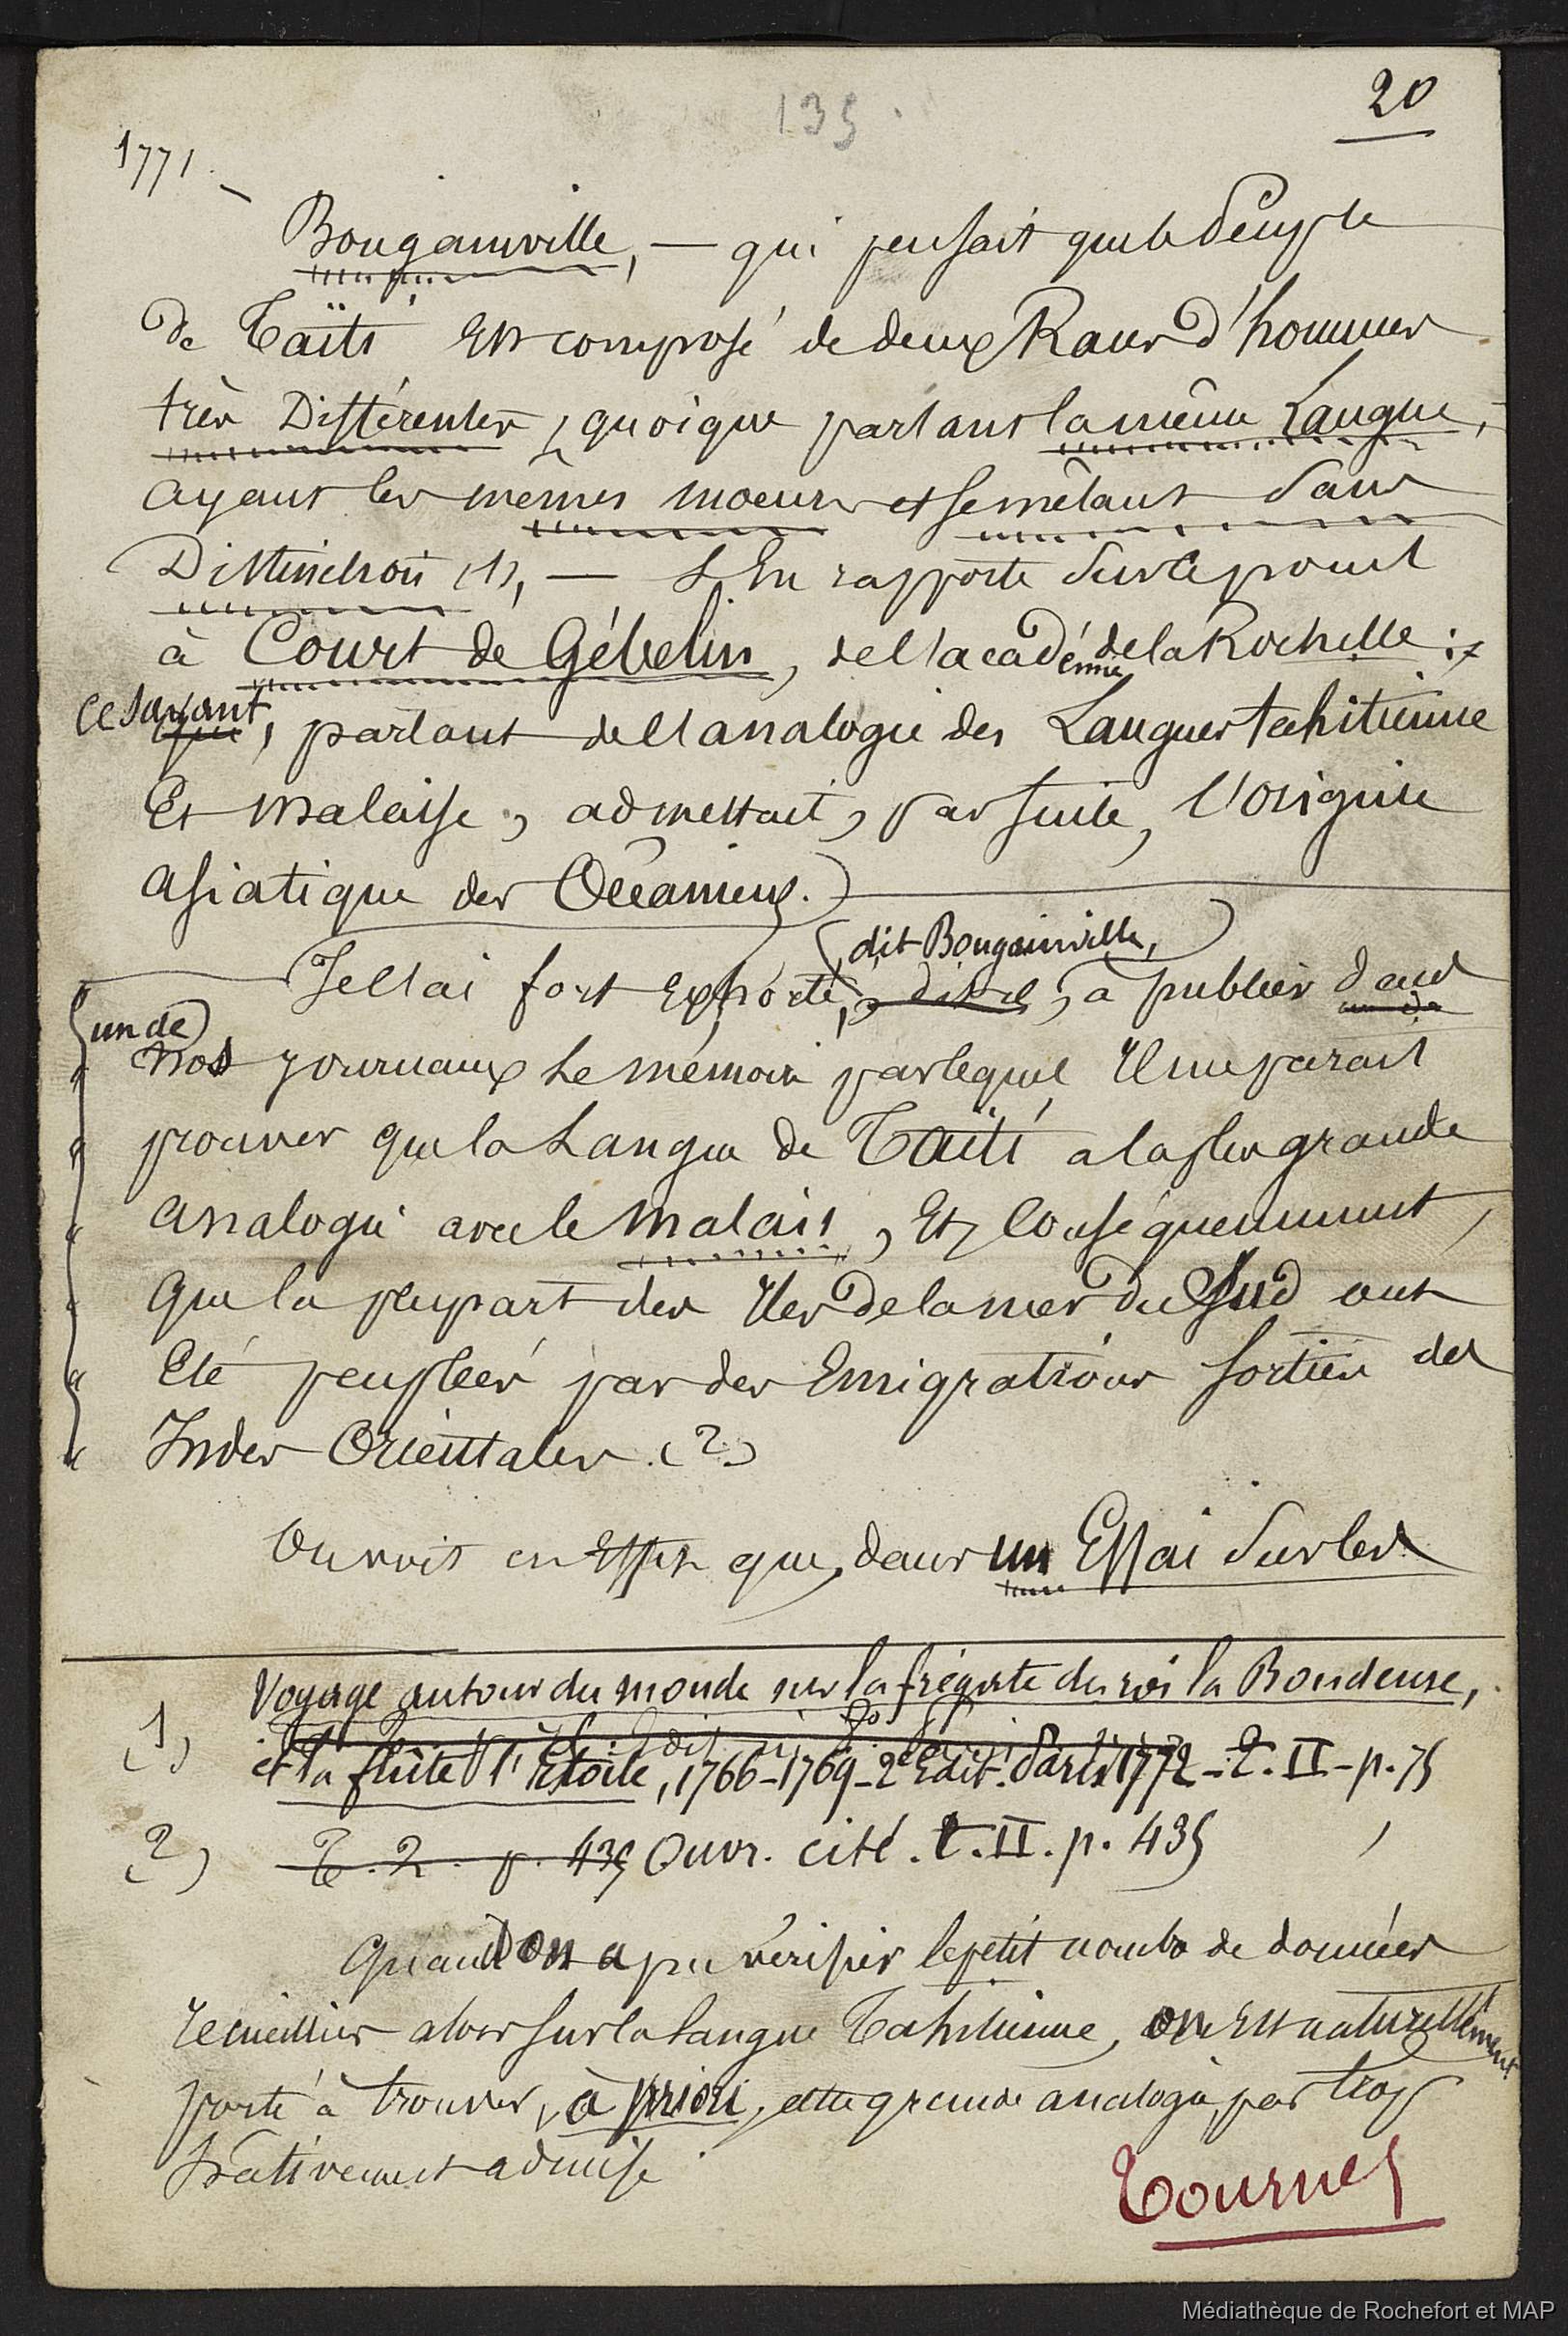 135
20
1771. –
Bougainville, — qui pensait que le Peuple
de Taïti est composé de deux Races d'hommes
très Différentes, quoique parlant la même Langue,
ayant les mêmes moeurs et se mêlant Sans
Distinction (1), — s'En rapporte Sur ce point
à Court de Gébelin, de l'académie de la Rochelle :
Ce Savant
qui, partant de l'analogie des Langues tahitienne
Et malaise, admettait, par suite, l'origine
asiatique des Océaniens.
(dit Bougainville,)
Je l'ai fort Exhorté, dit-il, à publier dans
un de
un de
nos journaux Le mémoire par lequel Il me parait
prouver que la Langue de Taïti a la plus grande
analogie avec le malais, Et, Conséquemment,
que la plupart des Iles de la mer du Sud ont
Eté peuplées par des Emigrations sorties des
Indes Orientales. (2)
On voit en Effet que, dans un Essai Sur les
(1) Voyage autour du monde sur la frégate du roi la Boudeuse,
et la flûte l'Etoile, 1766-1769 - 2e Edit. Paris 1772 - T. II - p. 75
(2) T. 2. p. 435 Ouvr. cité. T. II. p. 435
Quand on a pu vérifier le petit nombre de données
recueillies alors sur la Langue Tahitienne, on Est naturellement
porté à trouver, à priori, cette grande analogie, par trop
hâtivement admise
Tournez
Médiathèque de Rochefort et MAP